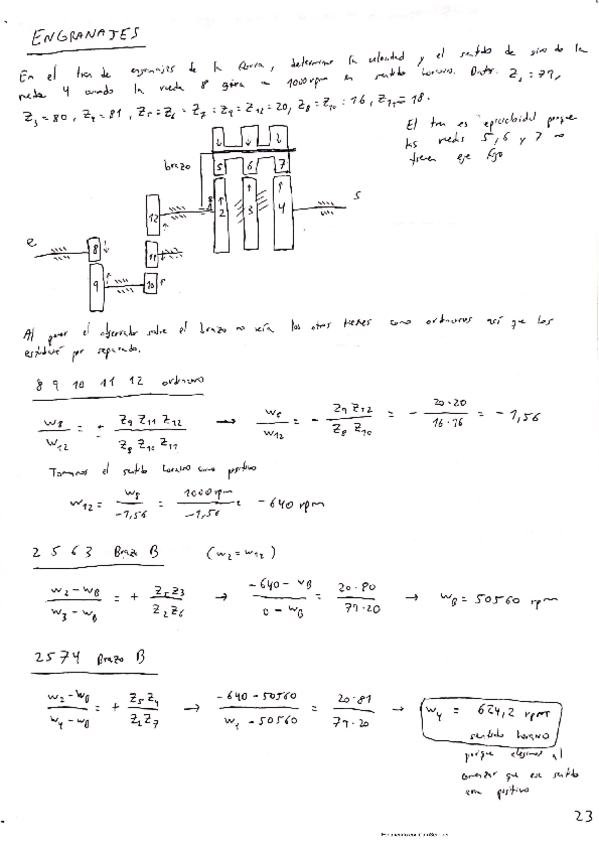 ENGRANAJES
En el tren de engranajes de la figura, determine la velocidad y el sentido de giro de la
rueda 4 cuando la rueda 8 gira a 1000 rpm en sentido horario. Datos: Z2 = 79,
Z3 = 80, Z4 = 81, Z5 = Z6 = Z7 = Z9 = Z12 = 20, Z8 = Z10 = 16, Z11 = 18.
El tren es epicicloidal porque
las ruedas 5, 6 y 7 no
tienen eje fijo
brazo
5 6 7
12 2 3 4 s
e 8 11
9 10
Al poner el observador sobre el brazo no vería los otros trenes como ordinarios así que los
estudiaré por separado.
8 9 10 11 12 ordinario
w8/w12 = + Z9 Z11 Z12 / Z8 Z10 Z11 → w8/w12 = - Z9 Z12 / Z8 Z10 = - 20·20 / 16·16 = -1,56
Tomamos el sentido horario como positivo
w12 = w8 / -1,56 = 1000 rpm / -1,56 = -640 rpm
2 5 6 3 Brazo B (w2 = w12)
w2 - wB / w3 - wB = + Z5 Z3 / Z2 Z6 → -640 - wB / 0 - wB = 20·80 / 79·20 → wB = 50560 rpm
2 5 7 4 Brazo B
w2 - wB / w4 - wB = + Z5 Z4 / Z2 Z7 → -640 - 50560 / w4 - 50560 = 20·81 / 79·20 → w4 = 624,2 rpm
sentido horario
porque elegimos al
comenzar que ese sentido
era positivo
23